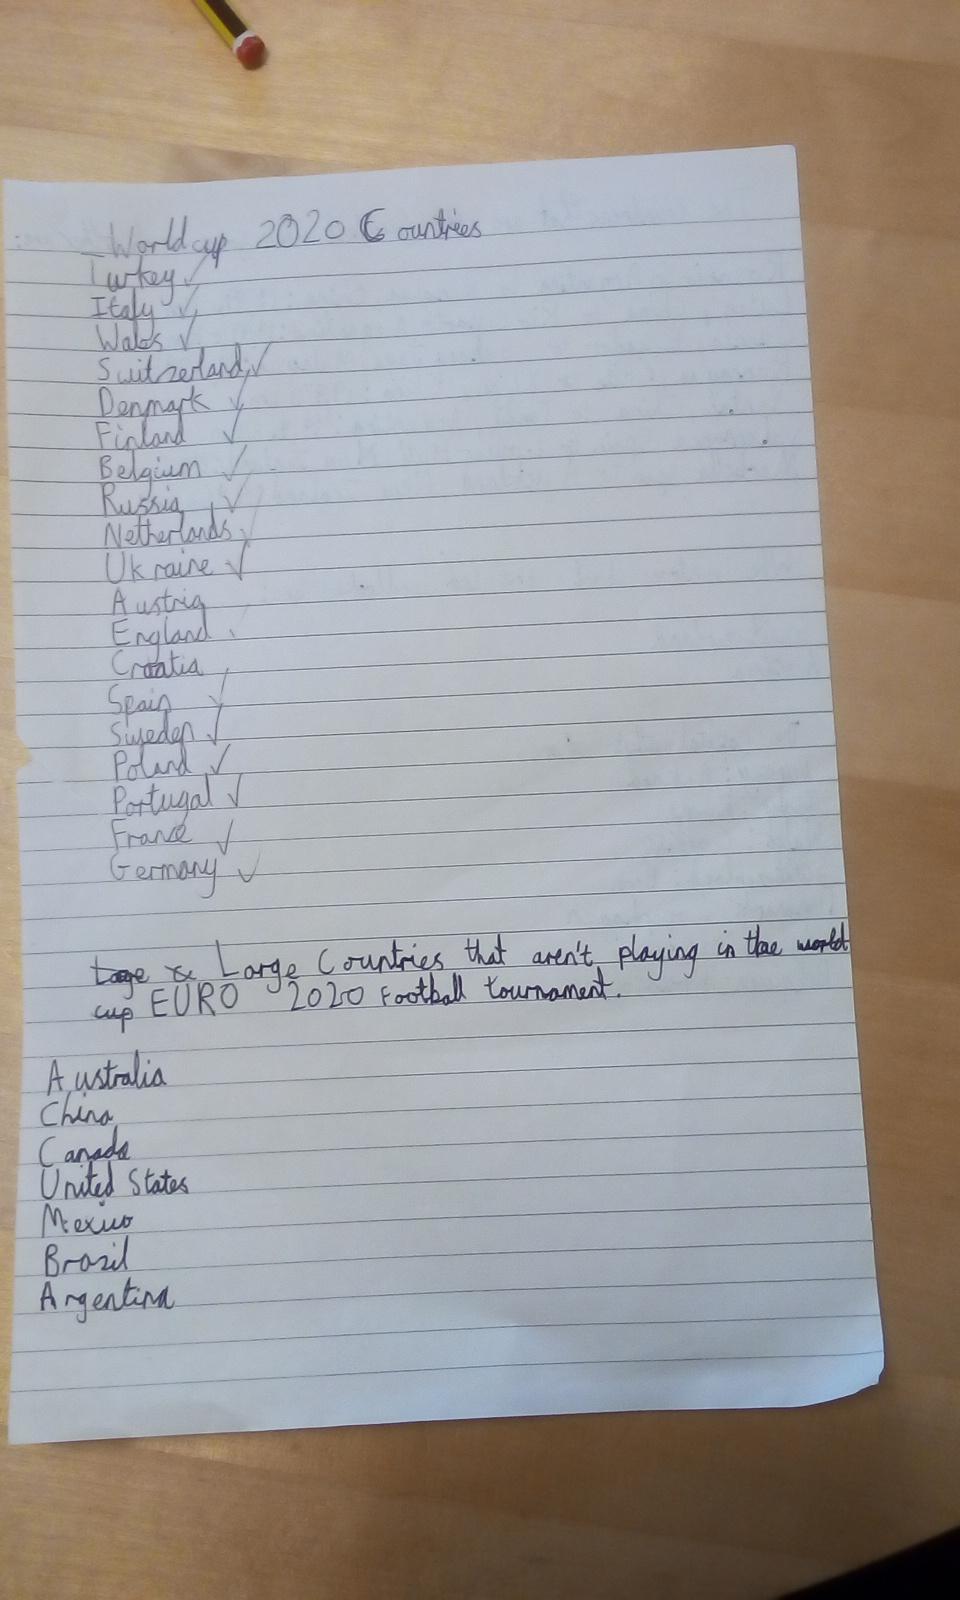 World cup 2020 Countries
Turkey ✓
Italy ✓
Wales ✓
Switzerland ✓
Denmark ✓
Finland ✓
Belgium ✓
Russia ✓
Netherlands ✓
Ukraine ✓
Austria
England
Croatia
Spain ✓
Sweden ✓
Poland ✓
Portugal ✓
France ✓
Germany ✓
Large Countries that aren't playing in the world
cup EURO 2020 Football tournament.
Australia
China
Canada
United States
Mexico
Brazil
Argentina